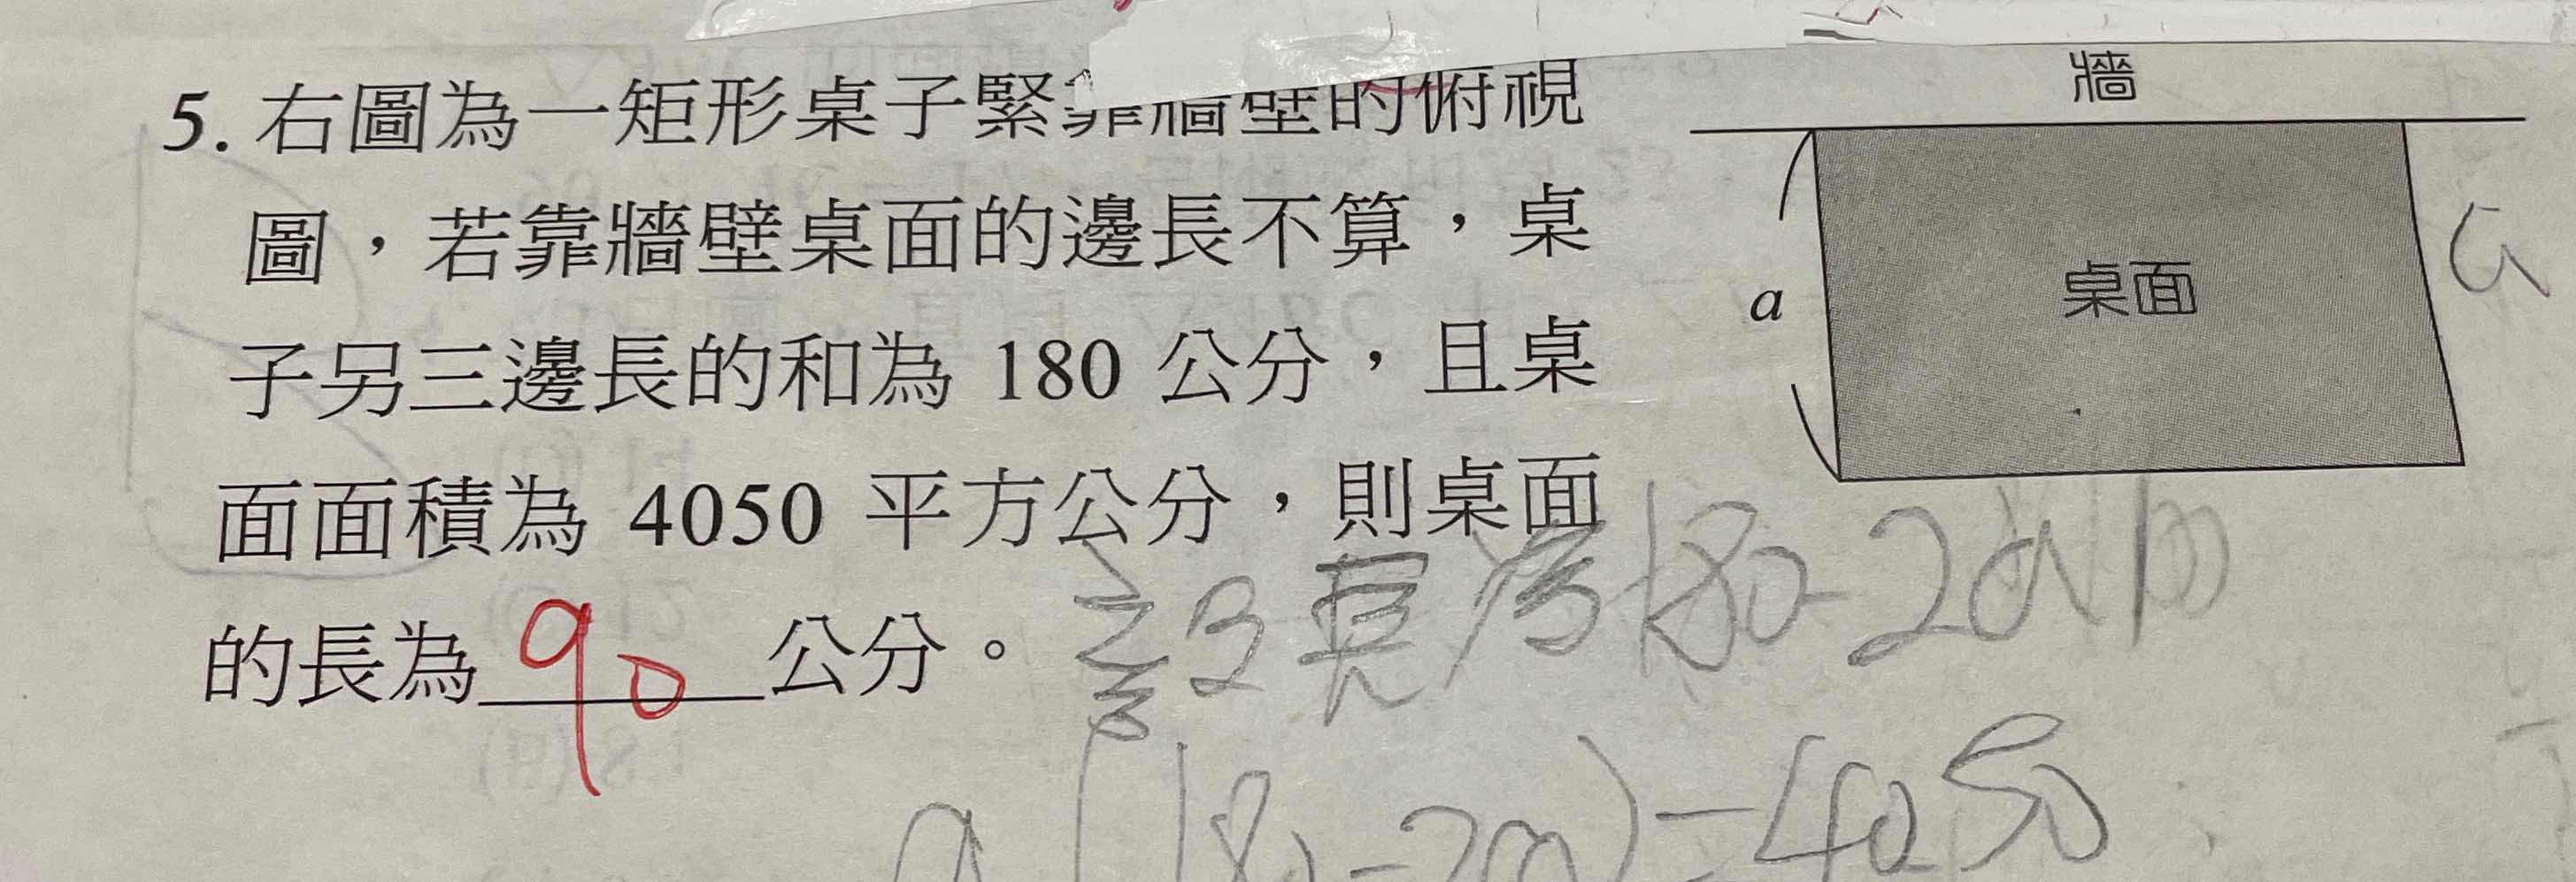 牆
5. 右圖為一矩形桌子緊靠牆壁的俯視
圖，若靠牆壁桌面的邊長不算，桌
子另三邊長的和為 180 公分，且桌
面面積為 4050 平方公分，則桌面
的長為 90 公分。
a
桌面
長為 180-2a
a(180-2a)=4050